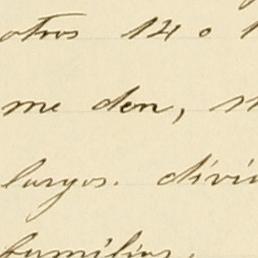 otros 14 o 1
me den, si
largos. divi
familias,